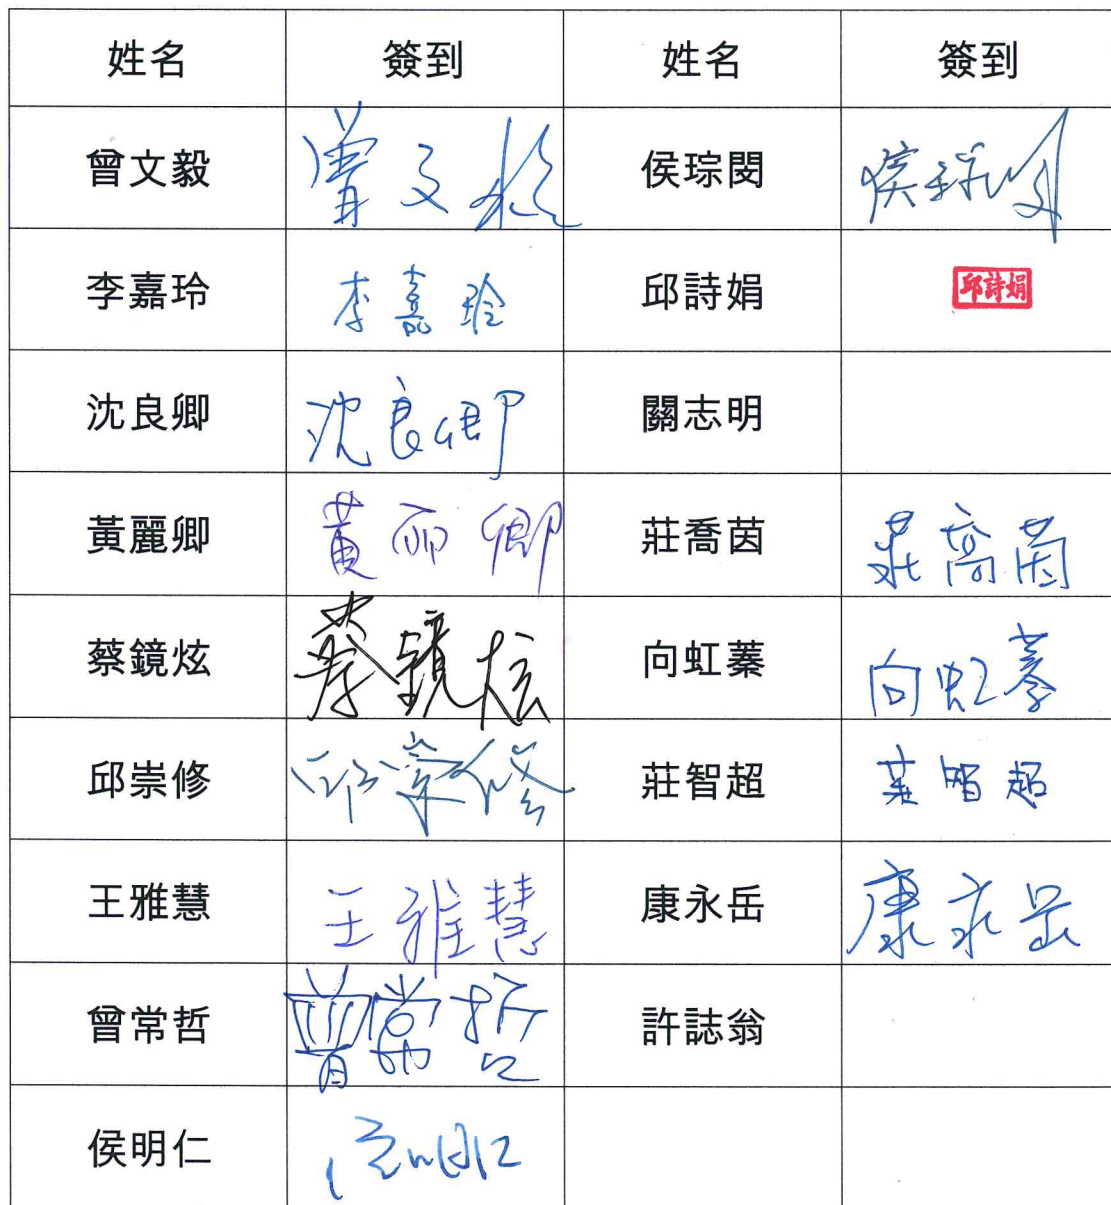 姓名 簽到 姓名 簽到
曾文毅 曾文毅 侯琮閔 侯琮閔
李嘉玲 李嘉玲 邱詩娟 邱詩娟
沈良卿 沈良卿 關志明
黃麗卿 黃丽卿 莊喬茵 莊喬茵
蔡鏡炫 蔡鏡炫 向虹蓁 向虹蓁
邱崇修 邱崇修 莊智超 莊智超
王雅慧 王雅慧 康永岳 康永岳
曾常哲 曾常哲 許誌翁
侯明仁 侯明仁